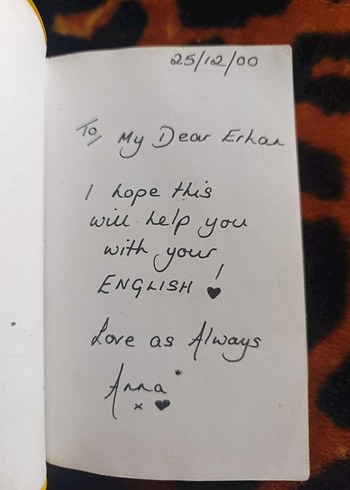 25/12/00
To, My Dear Erhan
I hope this
will help you
with your
ENGLISH! ♥
Love as Always
Anna
x ♥